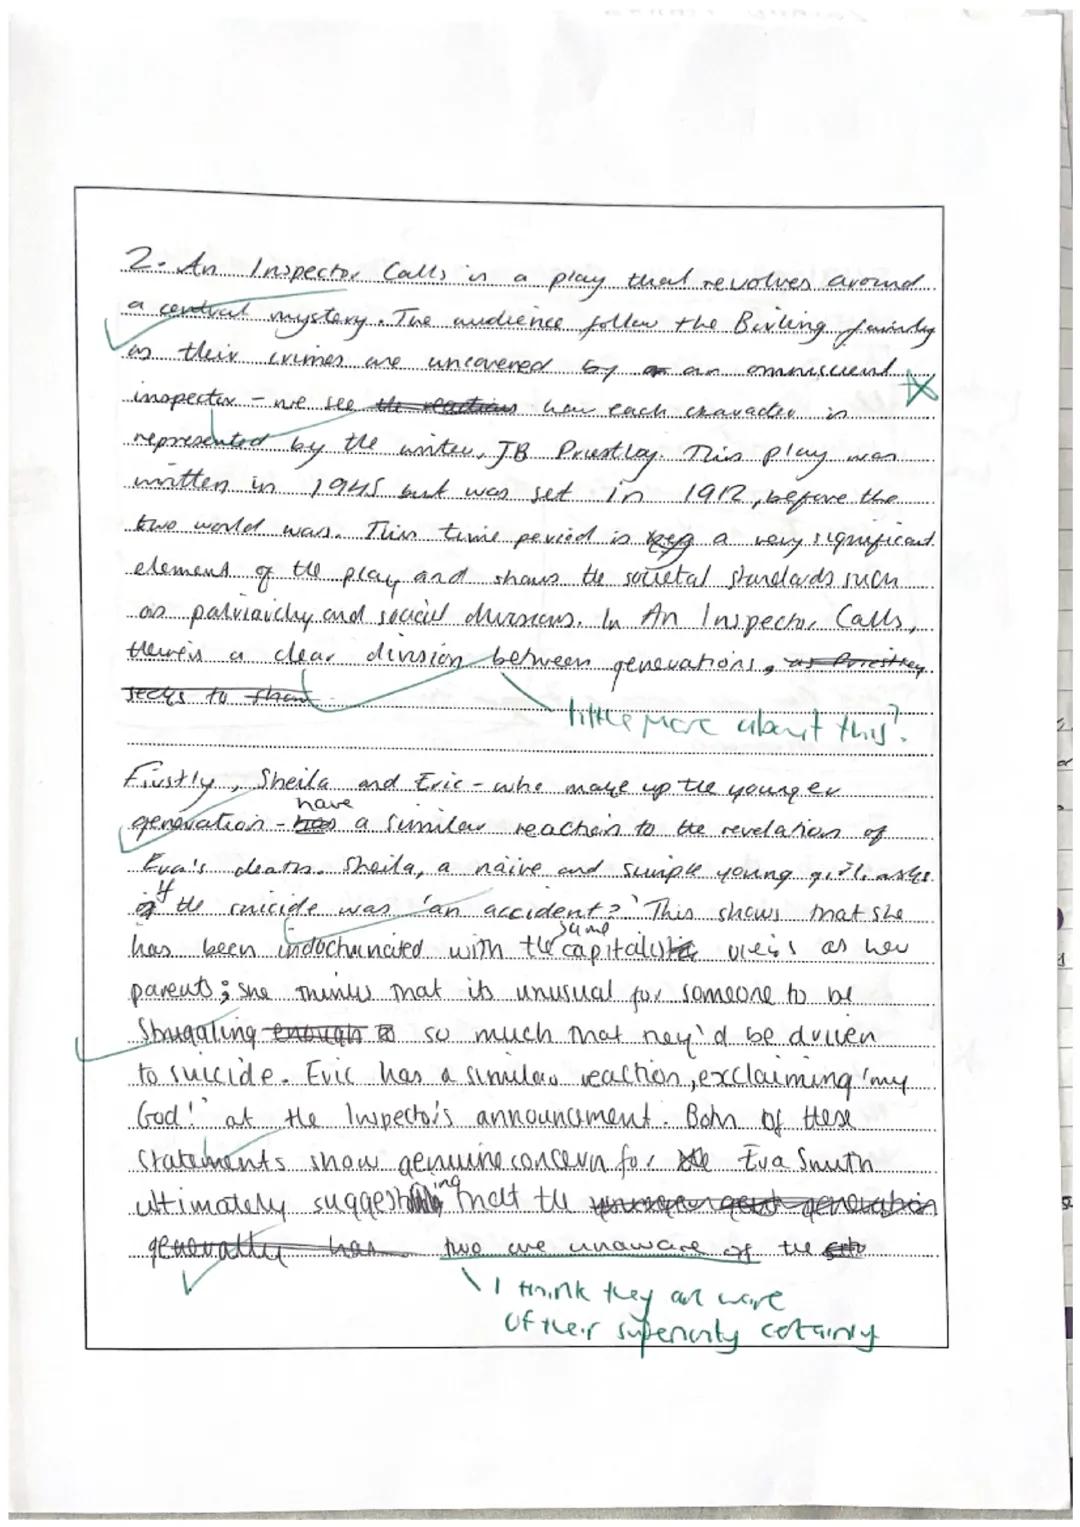 2. An Inspector Calls is a play that revolves around
a central mystery. The audience follow the Birling family
as their crimes are uncovered by an omniscient
inspector - we see the reactions how each character is
represented by the writer, JB Priestley. This play was
written in 1945 but was set in 1912, before the
two world wars. This time period is a very significant
element of the play and shows the societal standards such
as patriarchy and social divisions. In An Inspector Calls,
there is a clear division between generations, as Priestley
seeks to show
little more about this?
Firstly, Sheila and Eric - who make up the younger
have
generation - has a similar reaction to the revelation of
Eva's death. Sheila, a naive and simple young girl, asks
if the suicide was 'an accident?' This shows that she
same
has been indoctrinated with the capitalistic views as her
parents; she thinks that its unusual for someone to be
struggling enough so much that they'd be driven
to suicide. Eric has a similar reaction, exclaiming 'my
God!' at the Inspector's announcment. Both of these
statements show genuine concern for the Eva Smith
ultimately suggesting that the younger generation
generally has two are unaware of the
I think they are aware
of their superiority certainly